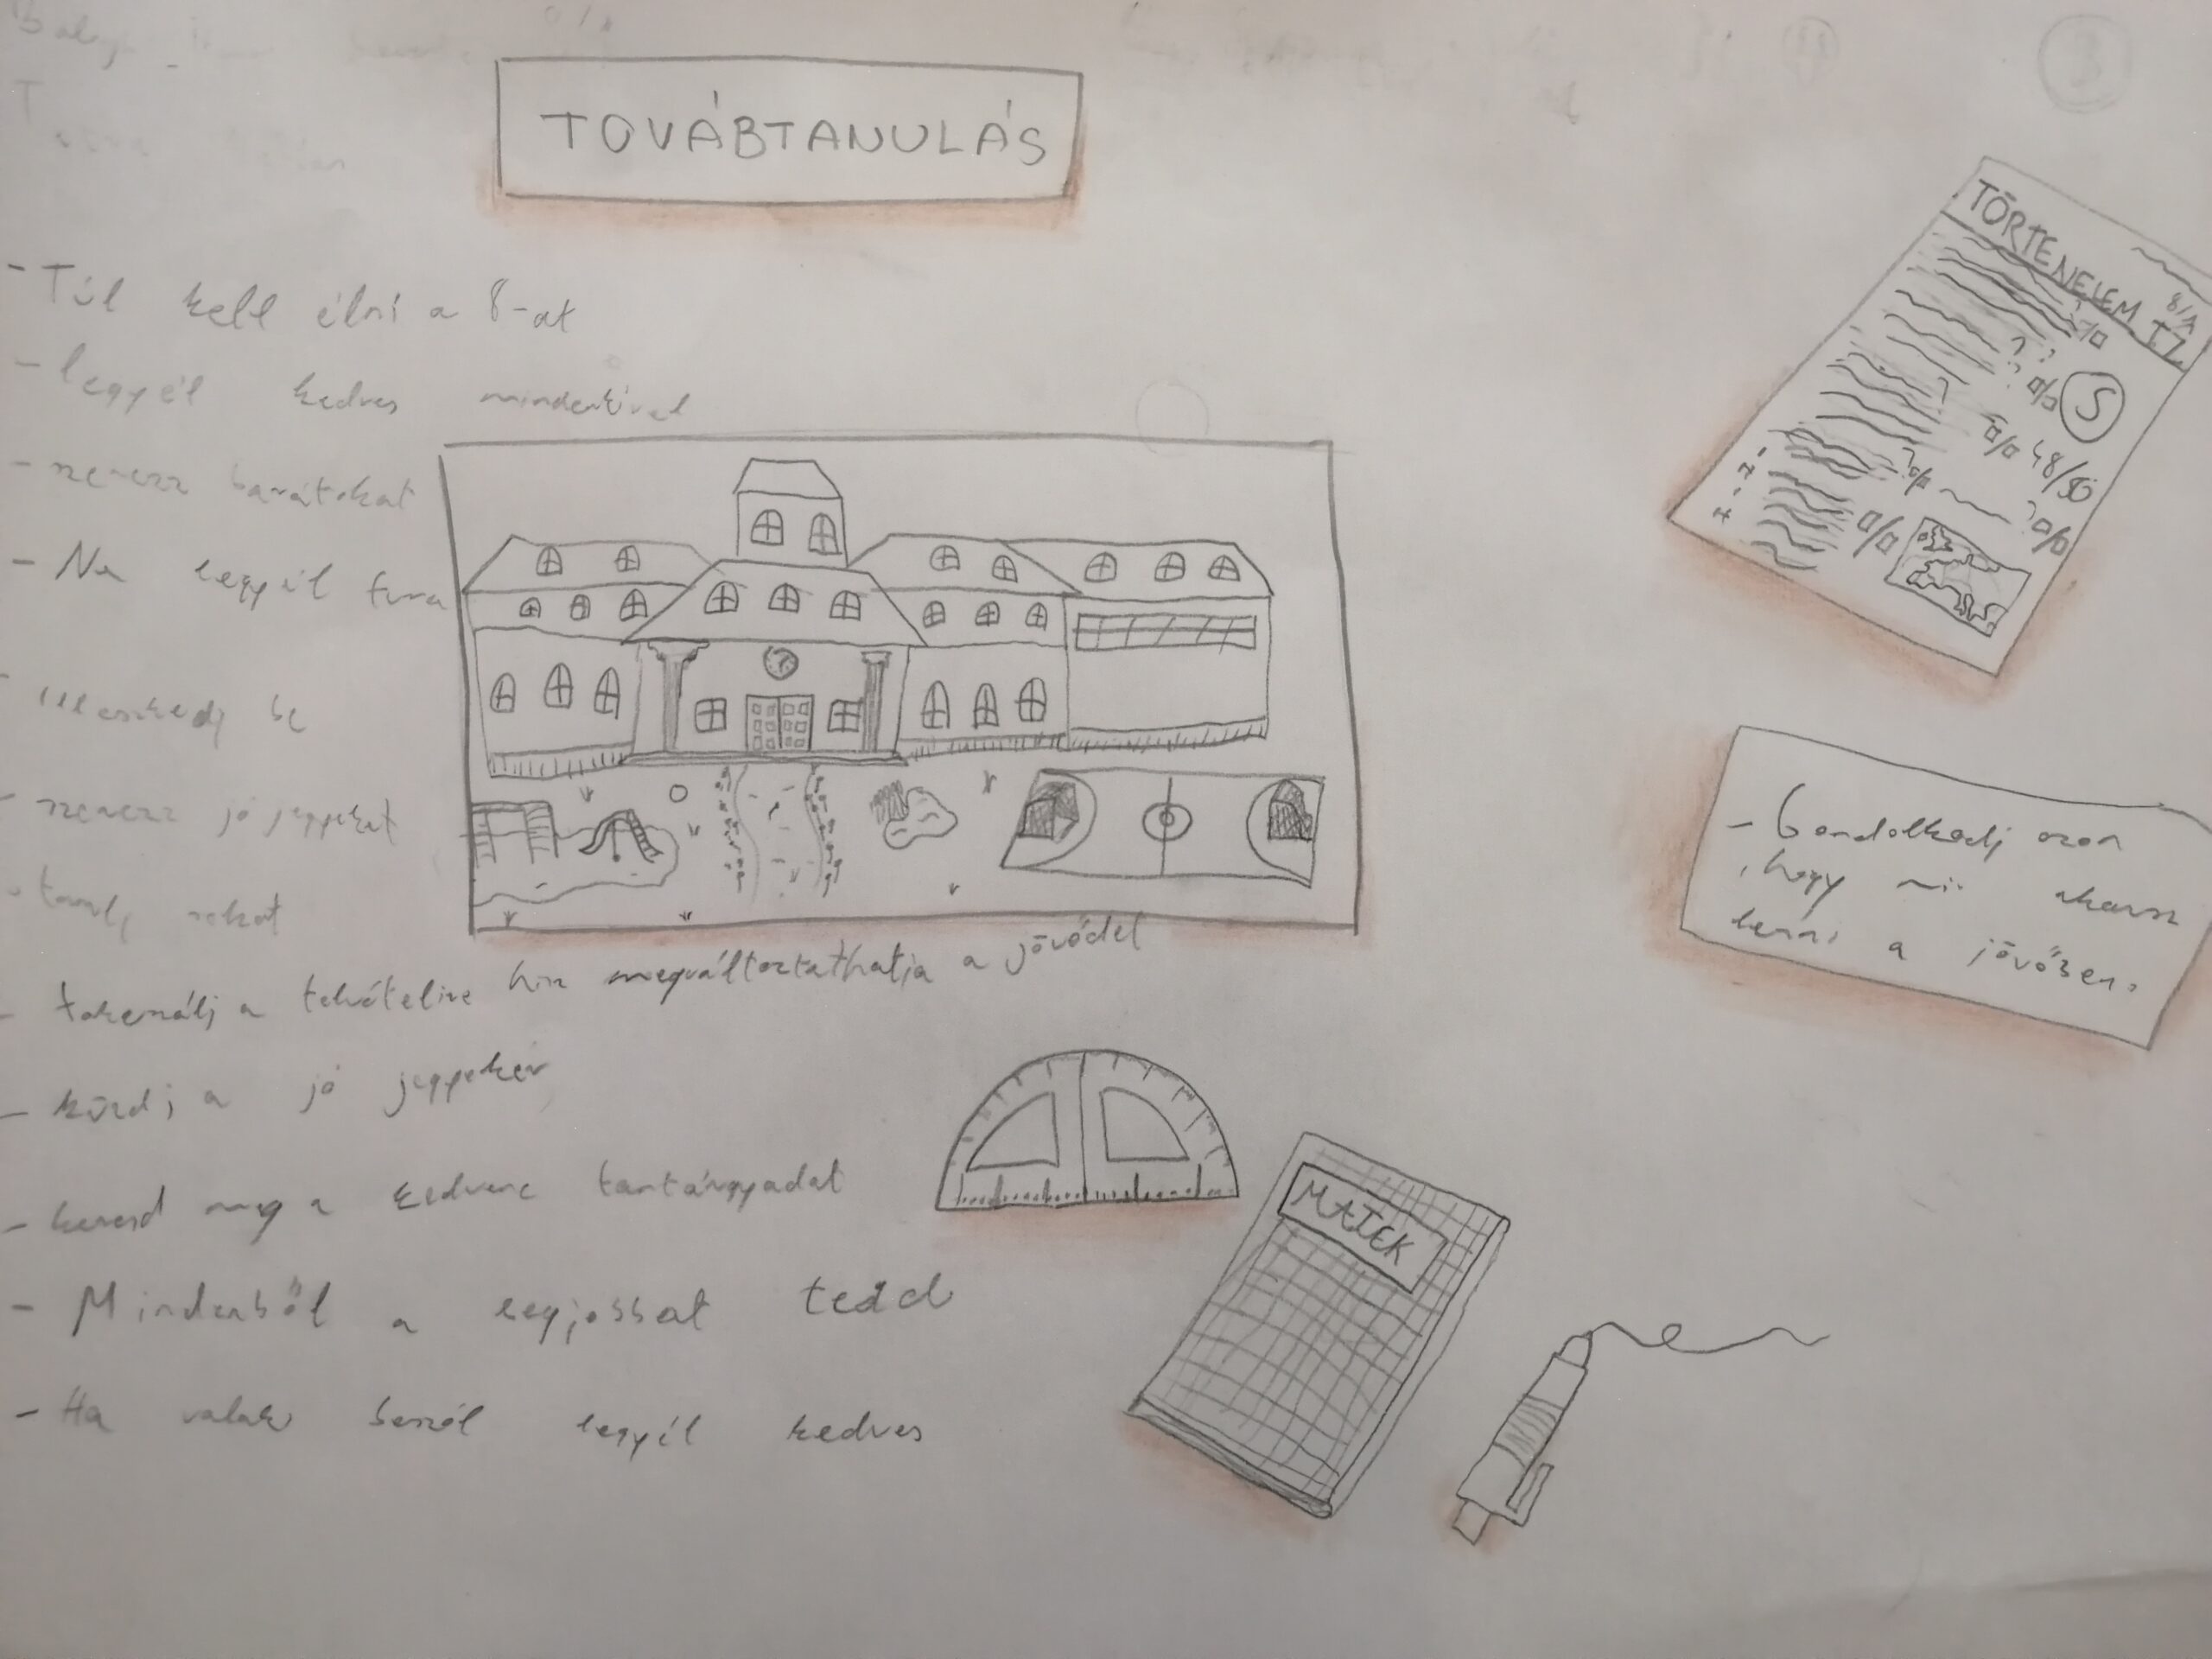 TOVÁBTANULÁS
- Túl kell élni a 8-at
- legyél kedves mindenkivel
- szerezz barátokat
- Ne legyél fura
- illeszkedj be
- szerezz jó jegyeket
- tanulj sokat
- tanulj a felvételire hisz megváltoztathatja a jövődet
- küzdj a jó jegyekér
- keresd meg a kedvenc tantárgyadat
- Mindenből a legjobbat tedd
- Ha valaki beszól legyél kedves
TÖRTENELEM TZ
8/A
5
48/50
- Gondolkodj azon
, hogy mi akarsz
lenni a jövőben.
MATEK